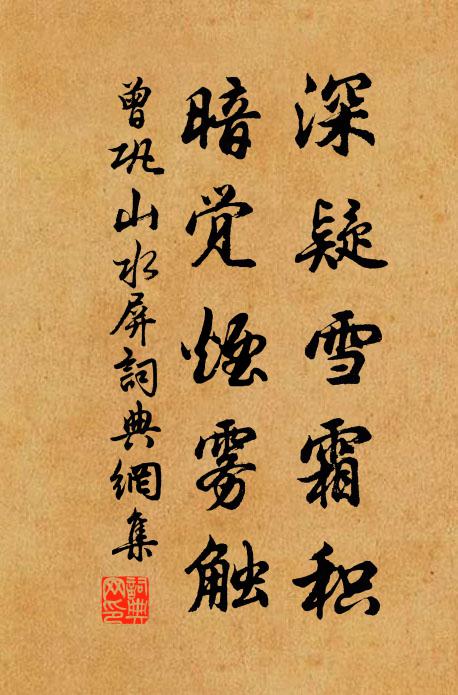 深疑雪霜积
暗觉烟雾触
曾巩山水屏詞典網集
詞典
网印